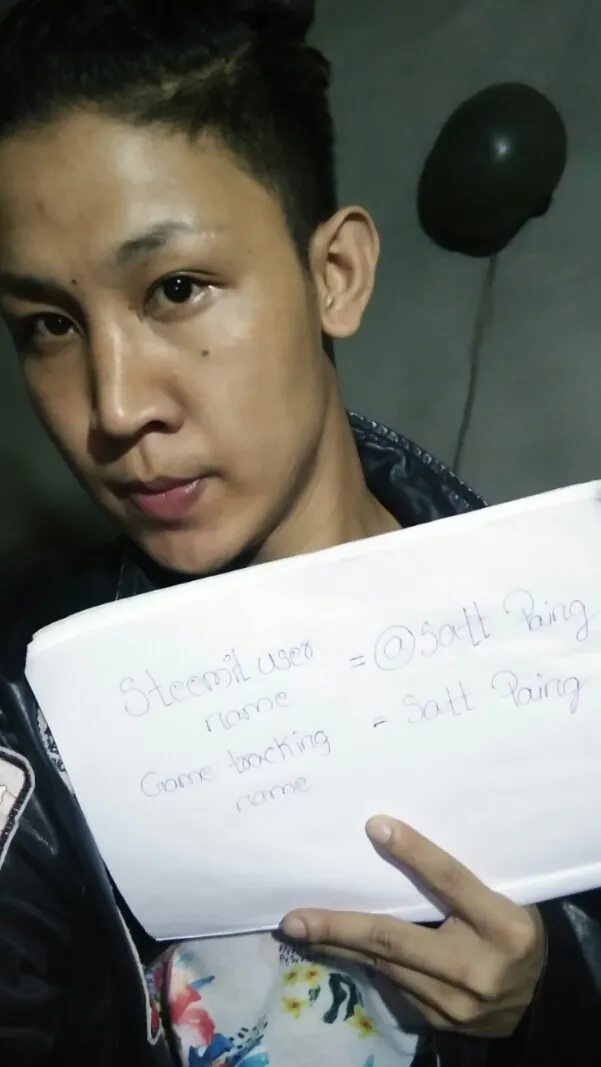 Steemit user = @Satt Paing
name
Game tracking = Satt Paing
name